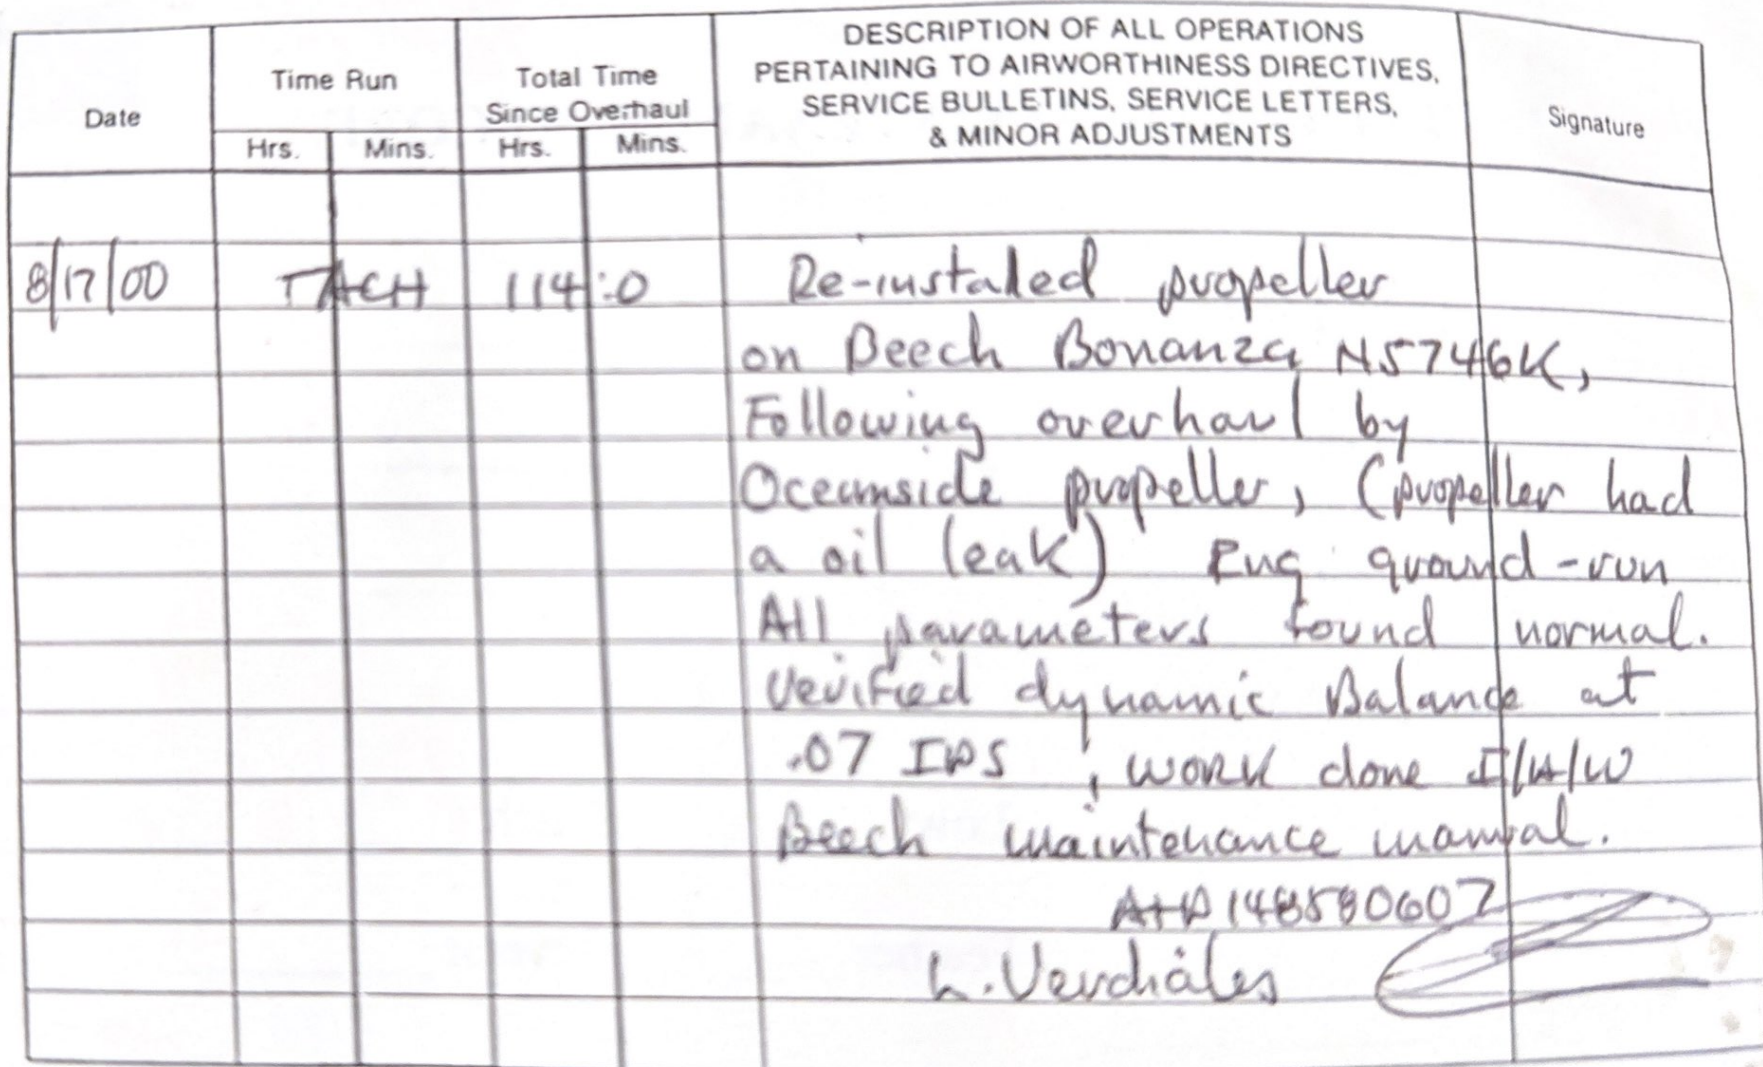 Date
Time Run
Hrs. Mins.
Total Time
Since Overhaul
Hrs. Mins.
DESCRIPTION OF ALL OPERATIONS
PERTAINING TO AIRWORTHINESS DIRECTIVES,
SERVICE BULLETINS, SERVICE LETTERS,
& MINOR ADJUSTMENTS
Signature
8/17/00 TACH 114:0 Re-instaled propeller
on Beech Bonanza N5746K,
Following overhaul by
Oceanside propeller, (propeller had
a oil leak) Eng ground-run
All parameters found normal.
Verified dynamic Balance at
.07 IPS, work done I/A/W
Beech maintenance manual.
A+P 148580607
L. Verdiales